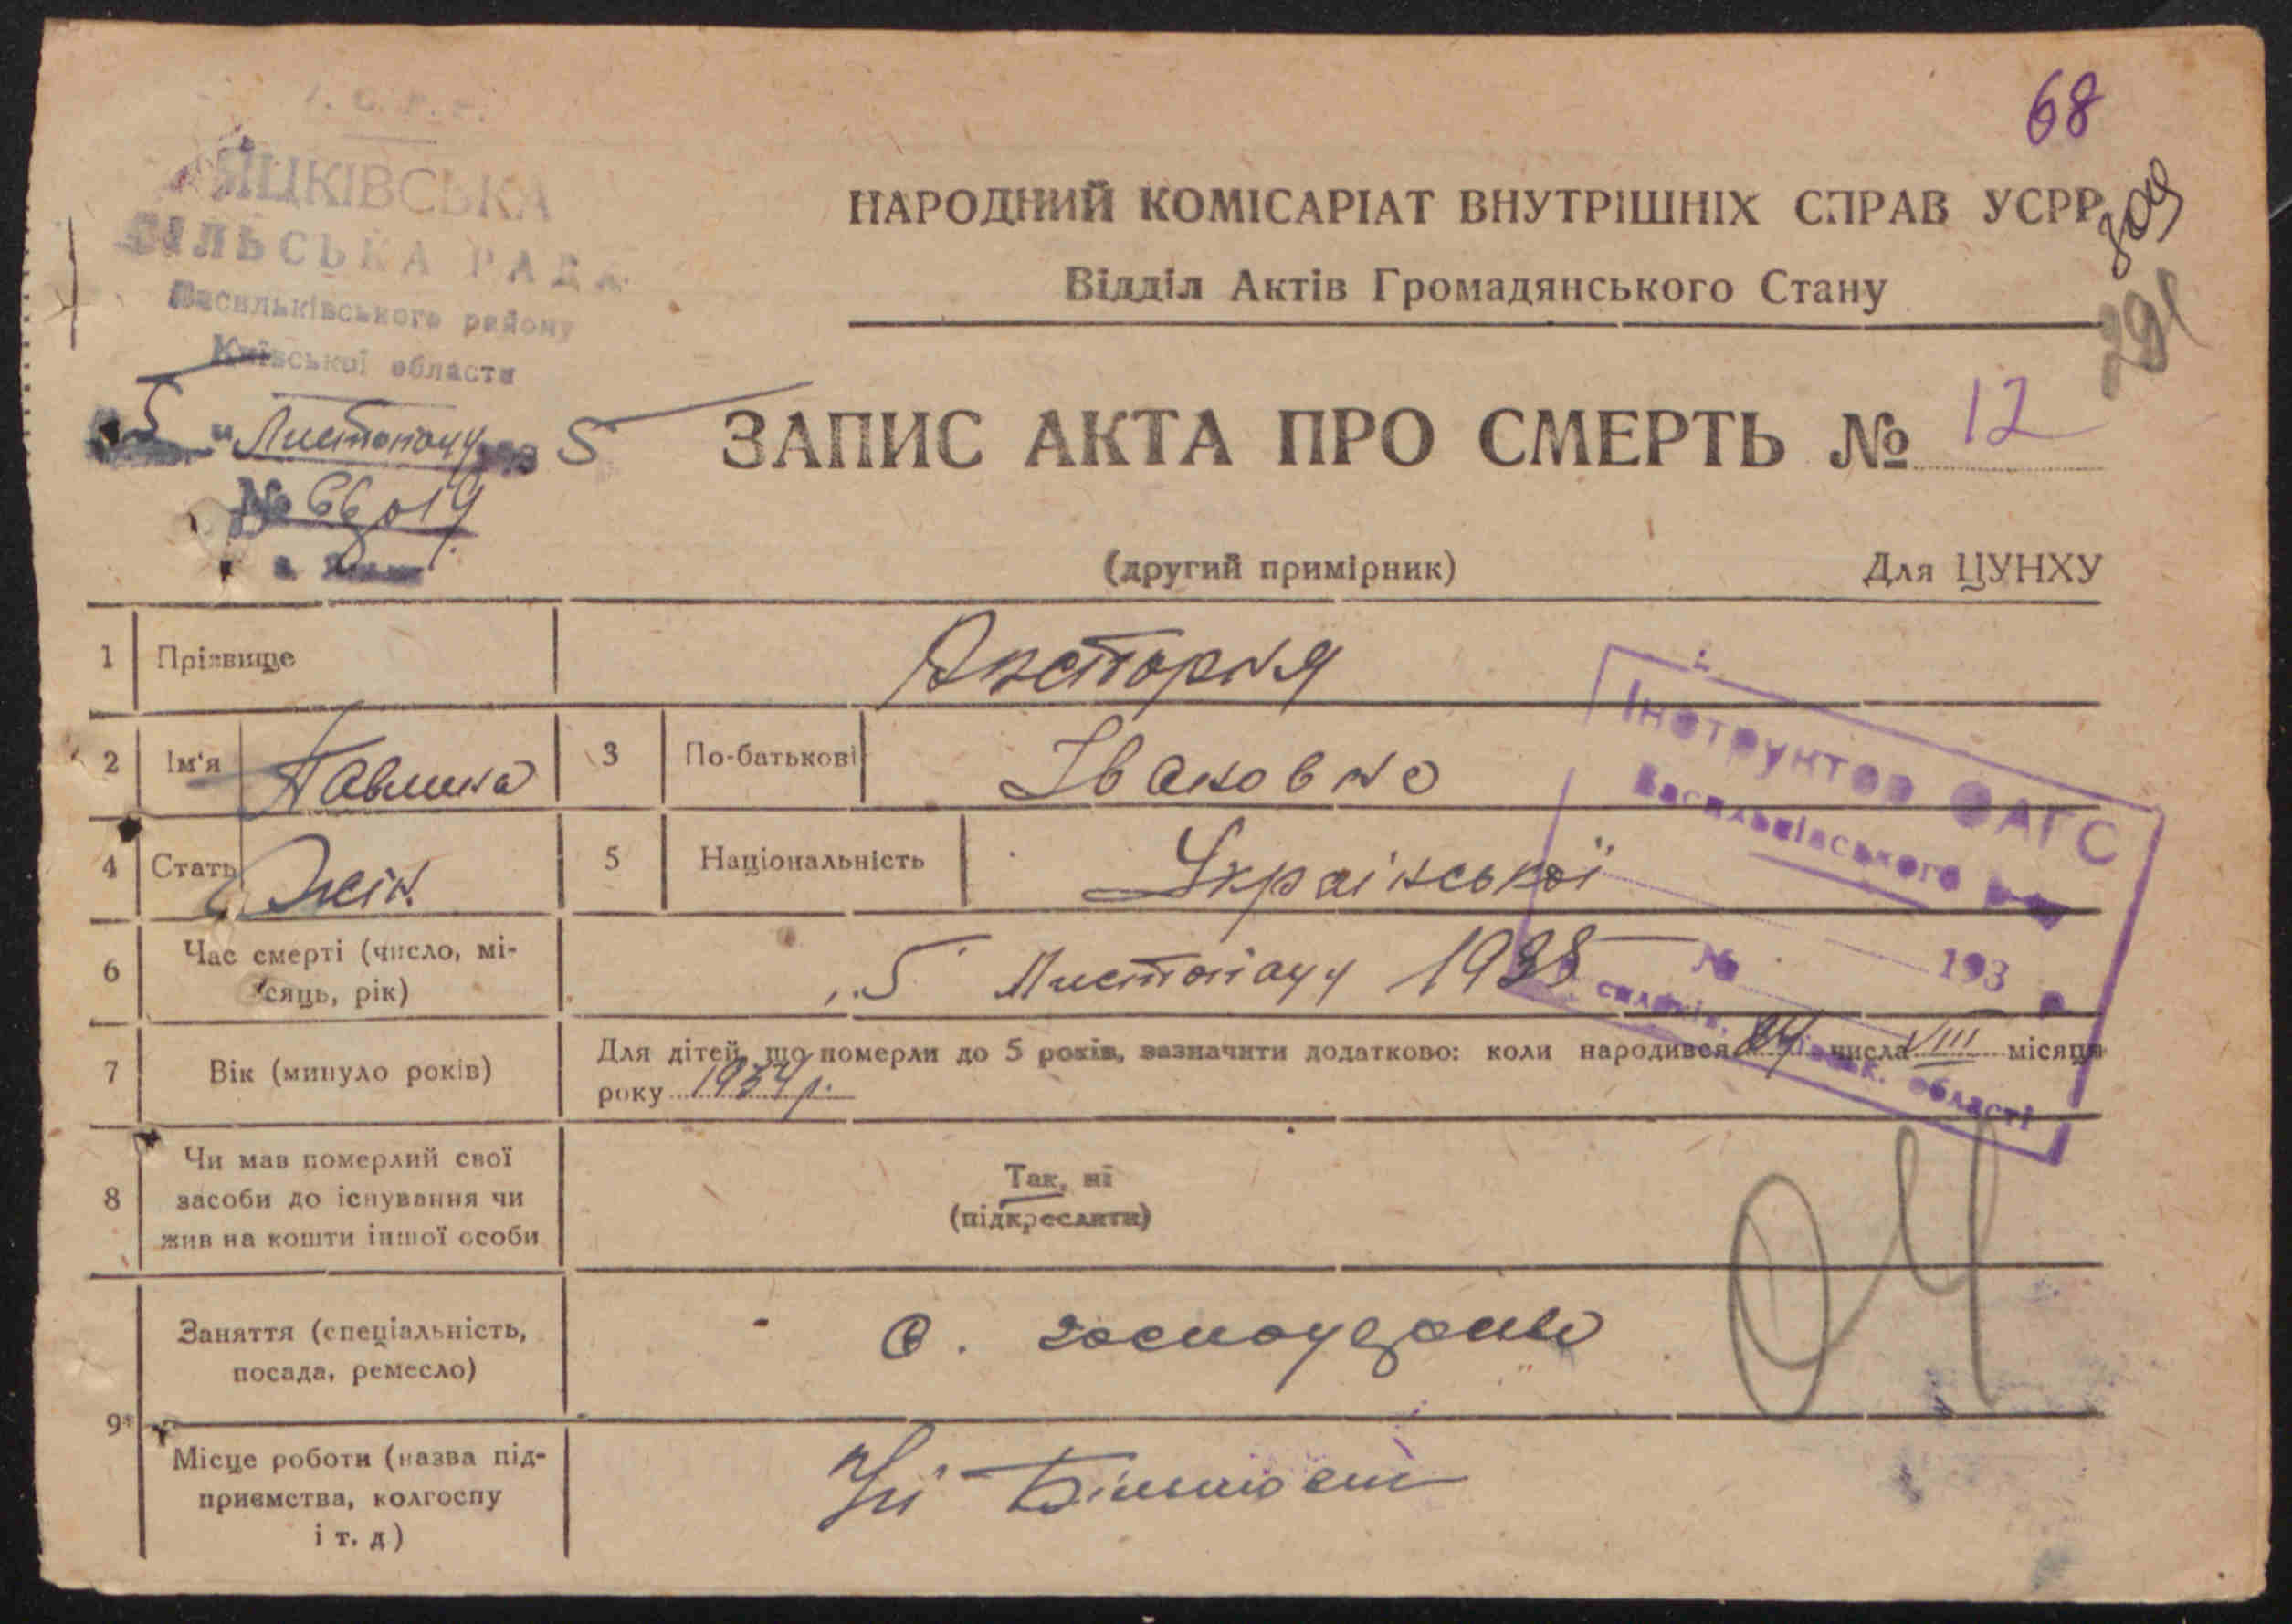 68
ЯЦКІВСЬКА
СІЛЬСЬКА РАДА
Васильківського району
Київської області
НАРОДНИЙ КОМІСАРІАТ ВНУТРІШНІХ СПРАВ УСРР
309
Відділ Актів Громадянського Стану
291
5 " Листопаду 193 5
ЗАПИС АКТА ПРО СМЕРТЬ № 12
№
(другий примірник) Для ЦУНХУ
1 Прізвище
2 Ім'я Павлина 3 По-батькові Івановна
4 Стать Жін. 5 Національність Української
Інструктор ФАГС
Васильківського р-ну
№ 193 р
області
6 Час смерті (число, мі-
сяць, рік) 5 Листопаду 1935
7 Вік (минуло років) Для дітей, що померли до 5 років, зазначити додатково: коли народився 24 числа VIII місяця
року 1934 р.
8 Чи мав померлий свої
засоби до існування чи
жив на кошти іншої особи
Так, ні
(підкреслити)
04
9* Заняття (спеціальність,
посада, ремесло)
Місце роботи (назва під-
приємства, колгоспу
і т. д)